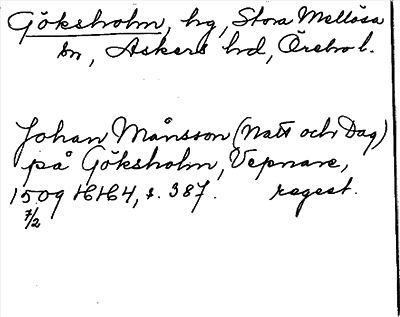 Göksholm, hg, Stora Mellösa
sn, Askers hd, Örebro l.
Johan Månsson (Natt och Dag)
på Göksholm, Vepnare,
1509 HH 4, s. 387. regest.
7/2